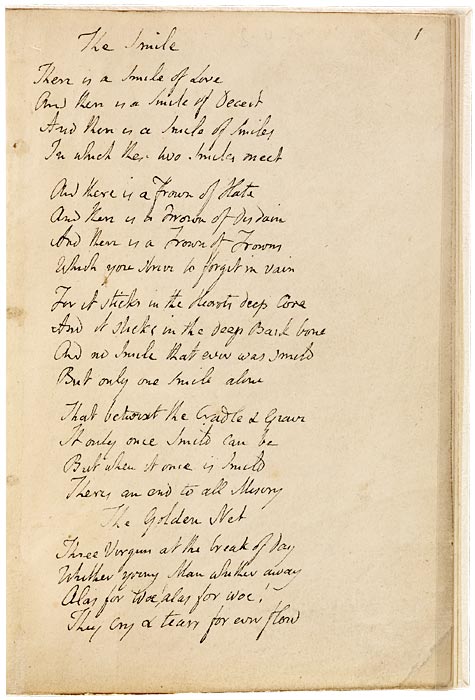 The Smile
1
There is a Smile of Love
And there is a Smile of Deceit
And there is a Smile of Smiles
In which these two Smiles meet
And there is a Frown of Hate
And there is a Frown of Disdain
And there is a Frown of Frowns
Which you strive to forget in vain
For it sticks in the Hearts deep Core
And it sticks in the deep Back bone
And no Smile that ever was smild
But only one Smile alone
That betwixt the Cradle & Grave
It only once Smild can be
But when it once is Smild
Theres an end to all Misery
The Golden Net
Three Virgins at the break of day
Whither young Man whither away
Alas for woe! alas for woe!
They cry & tears for ever flow